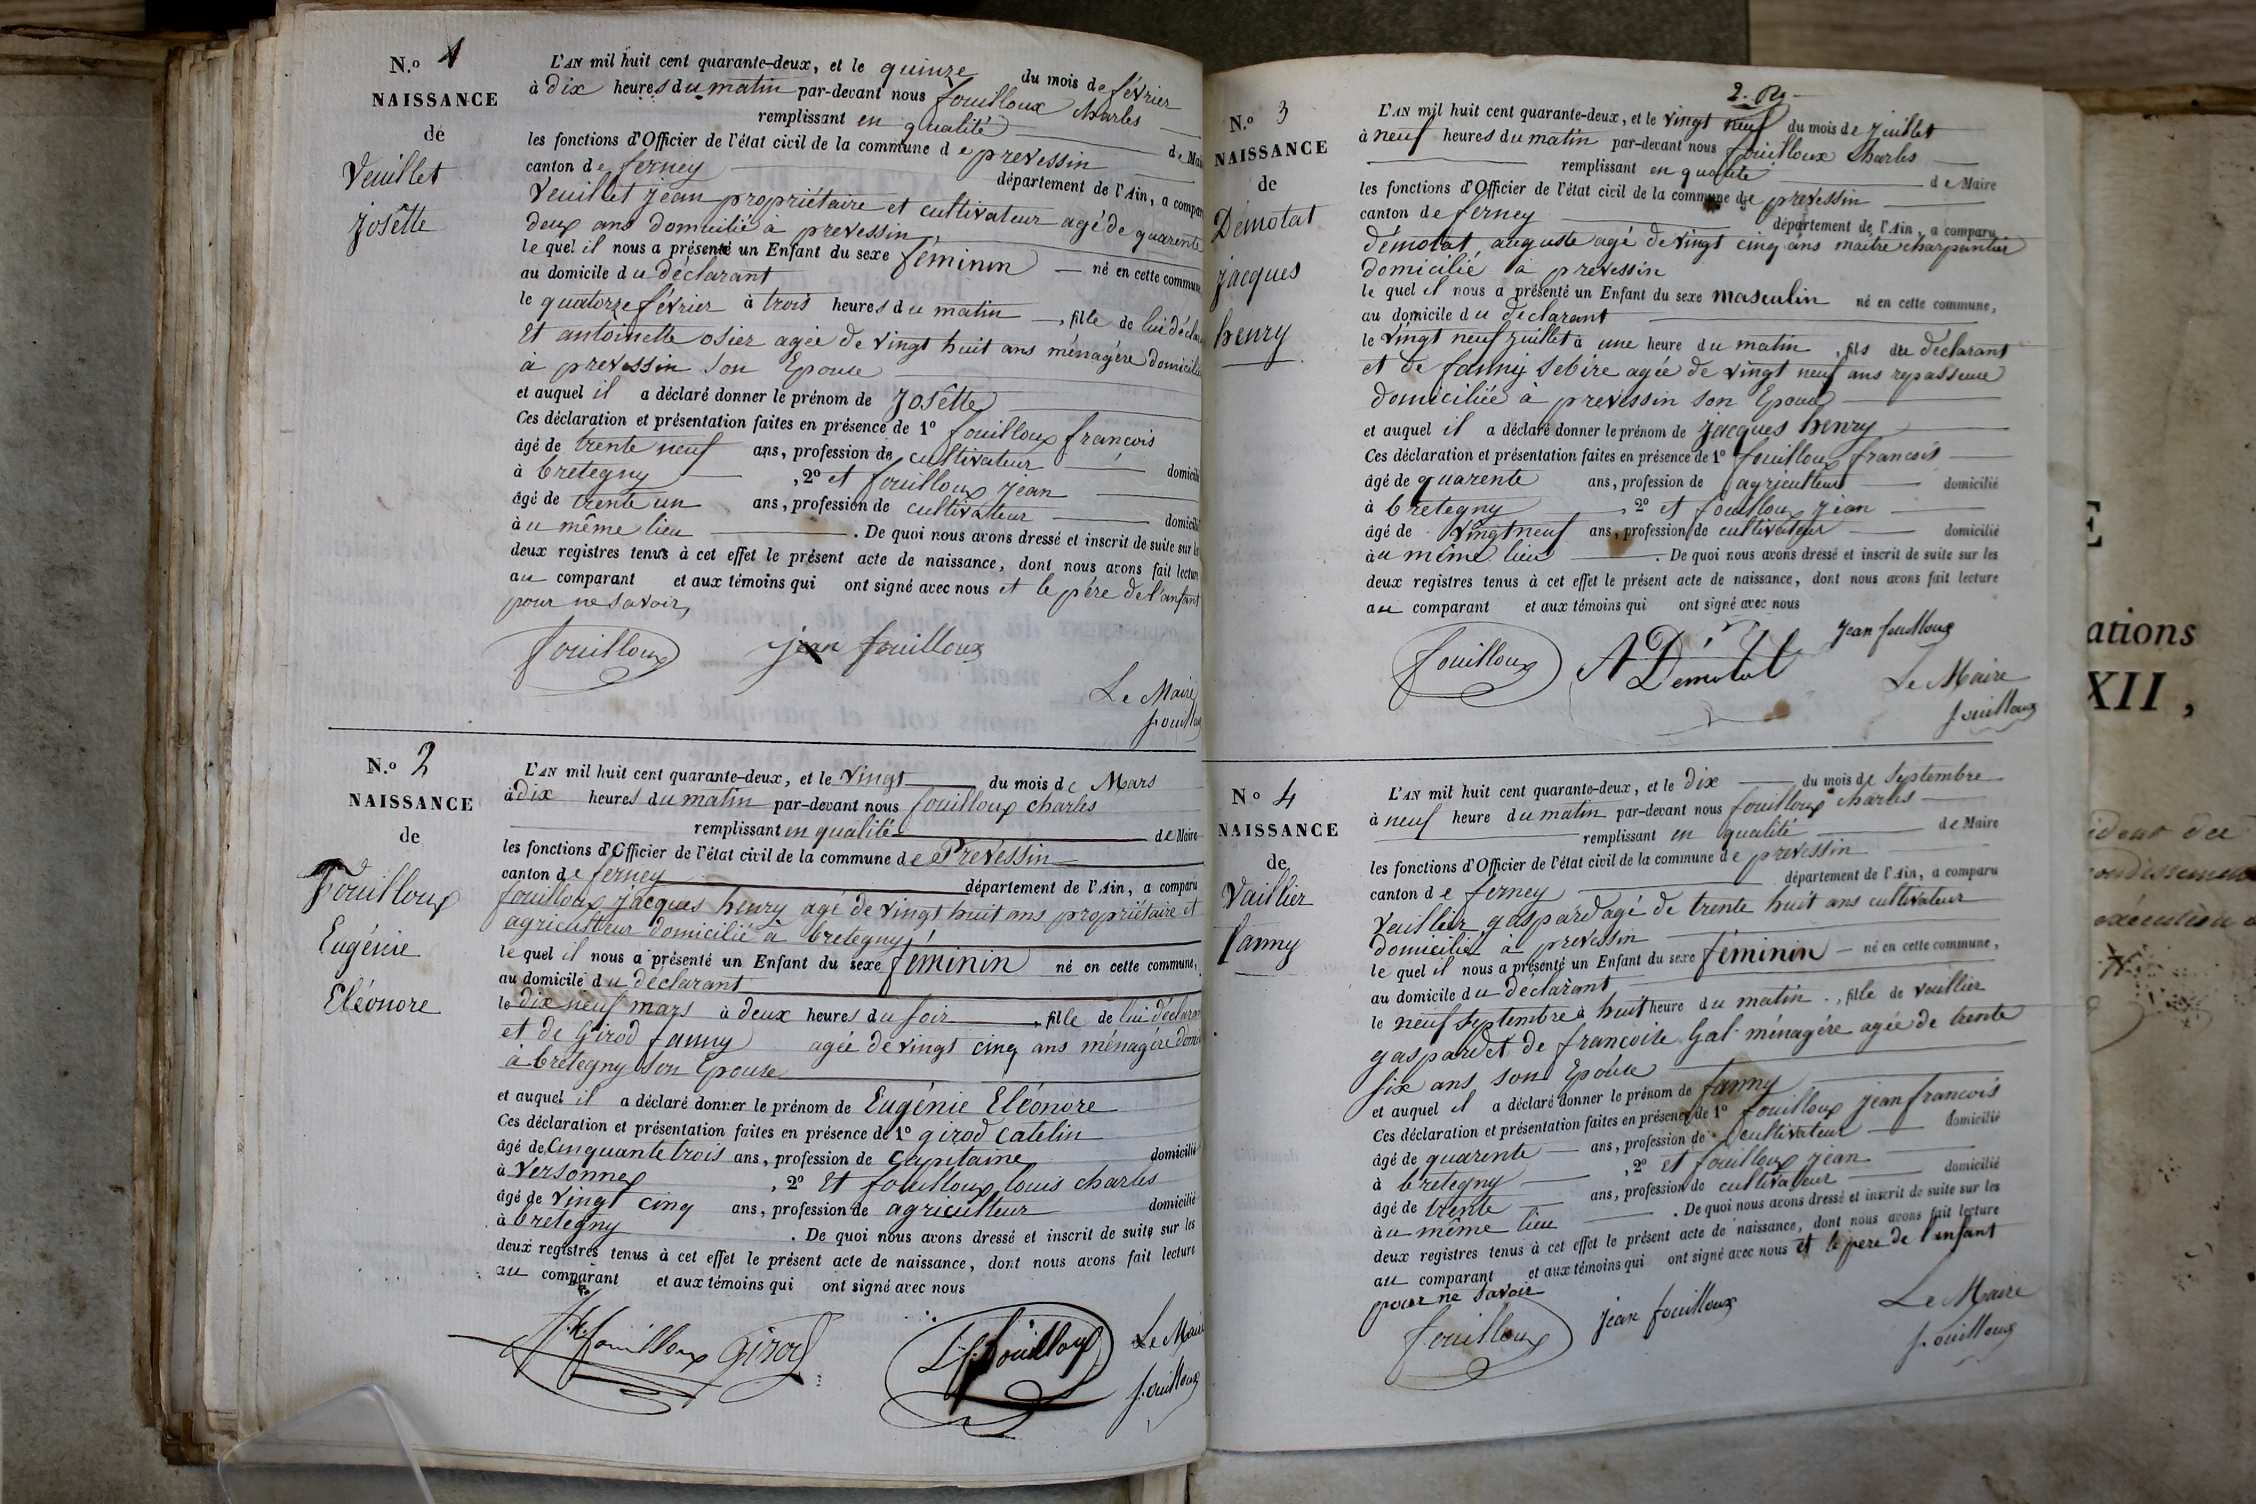 N.o 1
NAISSANCE
de
Veuillet
Josêtte
L'AN mil huit cent quarante-deux, et le quinze du mois de février
à dix heures du matin par-devant nous fouilloux charles
remplissant en qualité de Mai
les fonctions d'Officier de l'état civil de la commune de prevessin
canton de ferney département de l'Ain, a compar
Veuillet jean propriétaire et cultivateur agé de quarente
deux ans domicilié à prevessin
le quel il nous a présenté un Enfant du sexe féminin né en cette commune
au domicile du déclarant
le quatorze février à trois heures du matin, fille de lui décla
et antoinette osier agée de vingt huit ans ménagère domicilié
à prevessin son Epouse
et auquel il a déclaré donner le prénom de Josêtte
Ces déclaration et présentation faites en présence de 1º fouilloux francois
âgé de trente neuf ans, profession de cultivateur domicilié
à bretegny, 2º et fouilloux jean
âgé de trente un ans, profession de cultivateur domicilié
àu même lieu. De quoi nous avons dressé et inscrit de suite sur les
deux registres tenus à cet effet le présent acte de naissance, dont nous avons fait lecture
au comparant et aux témoins qui ont signé avec nous et le pére de l'anfant
pour ne savoir,
fouilloux jean fouilloux
Le Maire
fouilloux
N.o 2
NAISSANCE
de
Fouilloux
Eugénie
Eléonore
L'AN mil huit cent quarante-deux, et le vingt du mois de Mars
à dix heures du matin par-devant nous fouilloux charles
remplissant en qualité de Maire
les fonctions d'Officier de l'état civil de la commune de Prevessin
canton de ferney département de l'Ain, a comparu
fouilloux jacques henry agé de vingt huit ans propriétaire et
agriculteur domicilié à bretegny
le quel il nous a présenté un Enfant du sexe féminin né en cette commune,
au domicile du déclarant
le dix neuf mars à deux heures du soir, fille de lui déclaran
et de Girod fanny agée de vingt cinq ans ménagére domi
à bretegny son Epouse
et auquel il a déclaré donner le prénom de Eugénie Eléonore
Ces déclaration et présentation faites en présence de 1º girod catelin
âgé de Cinquante trois ans, profession de Capitaine domicilié
à Versonnex, 2º Et fouilloux louis charles
âgé de vingt cinq ans, profession de agriculteur domicilié
à bretegny. De quoi nous avons dressé et inscrit de suite sur les
deux registres tenus à cet effet le présent acte de naissance, dont nous avons fait lecture
au comparant et aux témoins qui ont signé avec nous
fouilloux Girod L. C. fouilloux
Le Maire
fouilloux
2.
N.o 3
NAISSANCE
de
Démotat
jacques
henry
L'AN mil huit cent quarante-deux, et le vingt neuf du mois de juillet
à neuf heures du matin par-devant nous fouilloux charles
remplissant en qualité de Maire
les fonctions d'Officier de l'état civil de la commune de prevessin
canton de ferney département de l'Ain, a comparu
démotat auguste agé de vingt cinq ans maitre charpantier
domicilié à prevessin
le quel il nous a présenté un Enfant du sexe masculin né en cette commune,
au domicile du déclarant
le vingt neuf juillet à une heure du matin, fils du déclarant
et de fanny sebire agée de vingt neuf ans repasseuse
domiciliée à prevessin son Epouse
et auquel il a déclaré donner le prénom de jacques henry
Ces déclaration et présentation faites en présence de 1º fouilloux francois
âgé de quarente ans, profession de agriculteur domicilié
à bretegny, 2º et fouilloux jean
âgé de vingt neuf ans, profession de cultivateur domicilié
àu même lieu. De quoi nous avons dressé et inscrit de suite sur les
deux registres tenus à cet effet le présent acte de naissance, dont nous avons fait lecture
au comparant et aux témoins qui ont signé avec nous
fouilloux A Démotat jean fouilloux
Le Maire
fouilloux
No 4
NAISSANCE
de
Vuillier
fanny
L'AN mil huit cent quarante-deux, et le dix du mois de septembre
à neuf heure du matin par-devant nous fouilloux charles
remplissant en qualité de Maire
les fonctions d'Officier de l'état civil de la commune de prevessin
canton de ferney département de l'Ain, a comparu
veuillier gaspard agé de trente huit ans cultivateur
domicilié à prevessin
le quel il nous a présenté un Enfant du sexe féminin né en cette commune,
au domicile du déclarant
le neuf septembre à huit heure du matin, fille de veullier
gaspard et de francoise Gal ménagére agée de trente
six ans son Epouse
et auquel il a déclaré donner le prénom de fanny
Ces déclaration et présentation faites en présence de 1º fouilloux jean francois
âgé de quarente ans, profession de cultivateur domicilié
à bretegny, 2º et fouilloux jean
âgé de trente ans, profession de cultivateur domicilié
àu même lieu. De quoi nous avons dressé et inscrit de suite sur les
deux registres tenus à cet effet le présent acte de naissance, dont nous avons fait lecture
au comparant et aux témoins qui ont signé avec nous et le pere de l'enfant
pour ne savoir
fouilloux jean fouilloux
Le Maire
fouilloux
E
ations
XII,